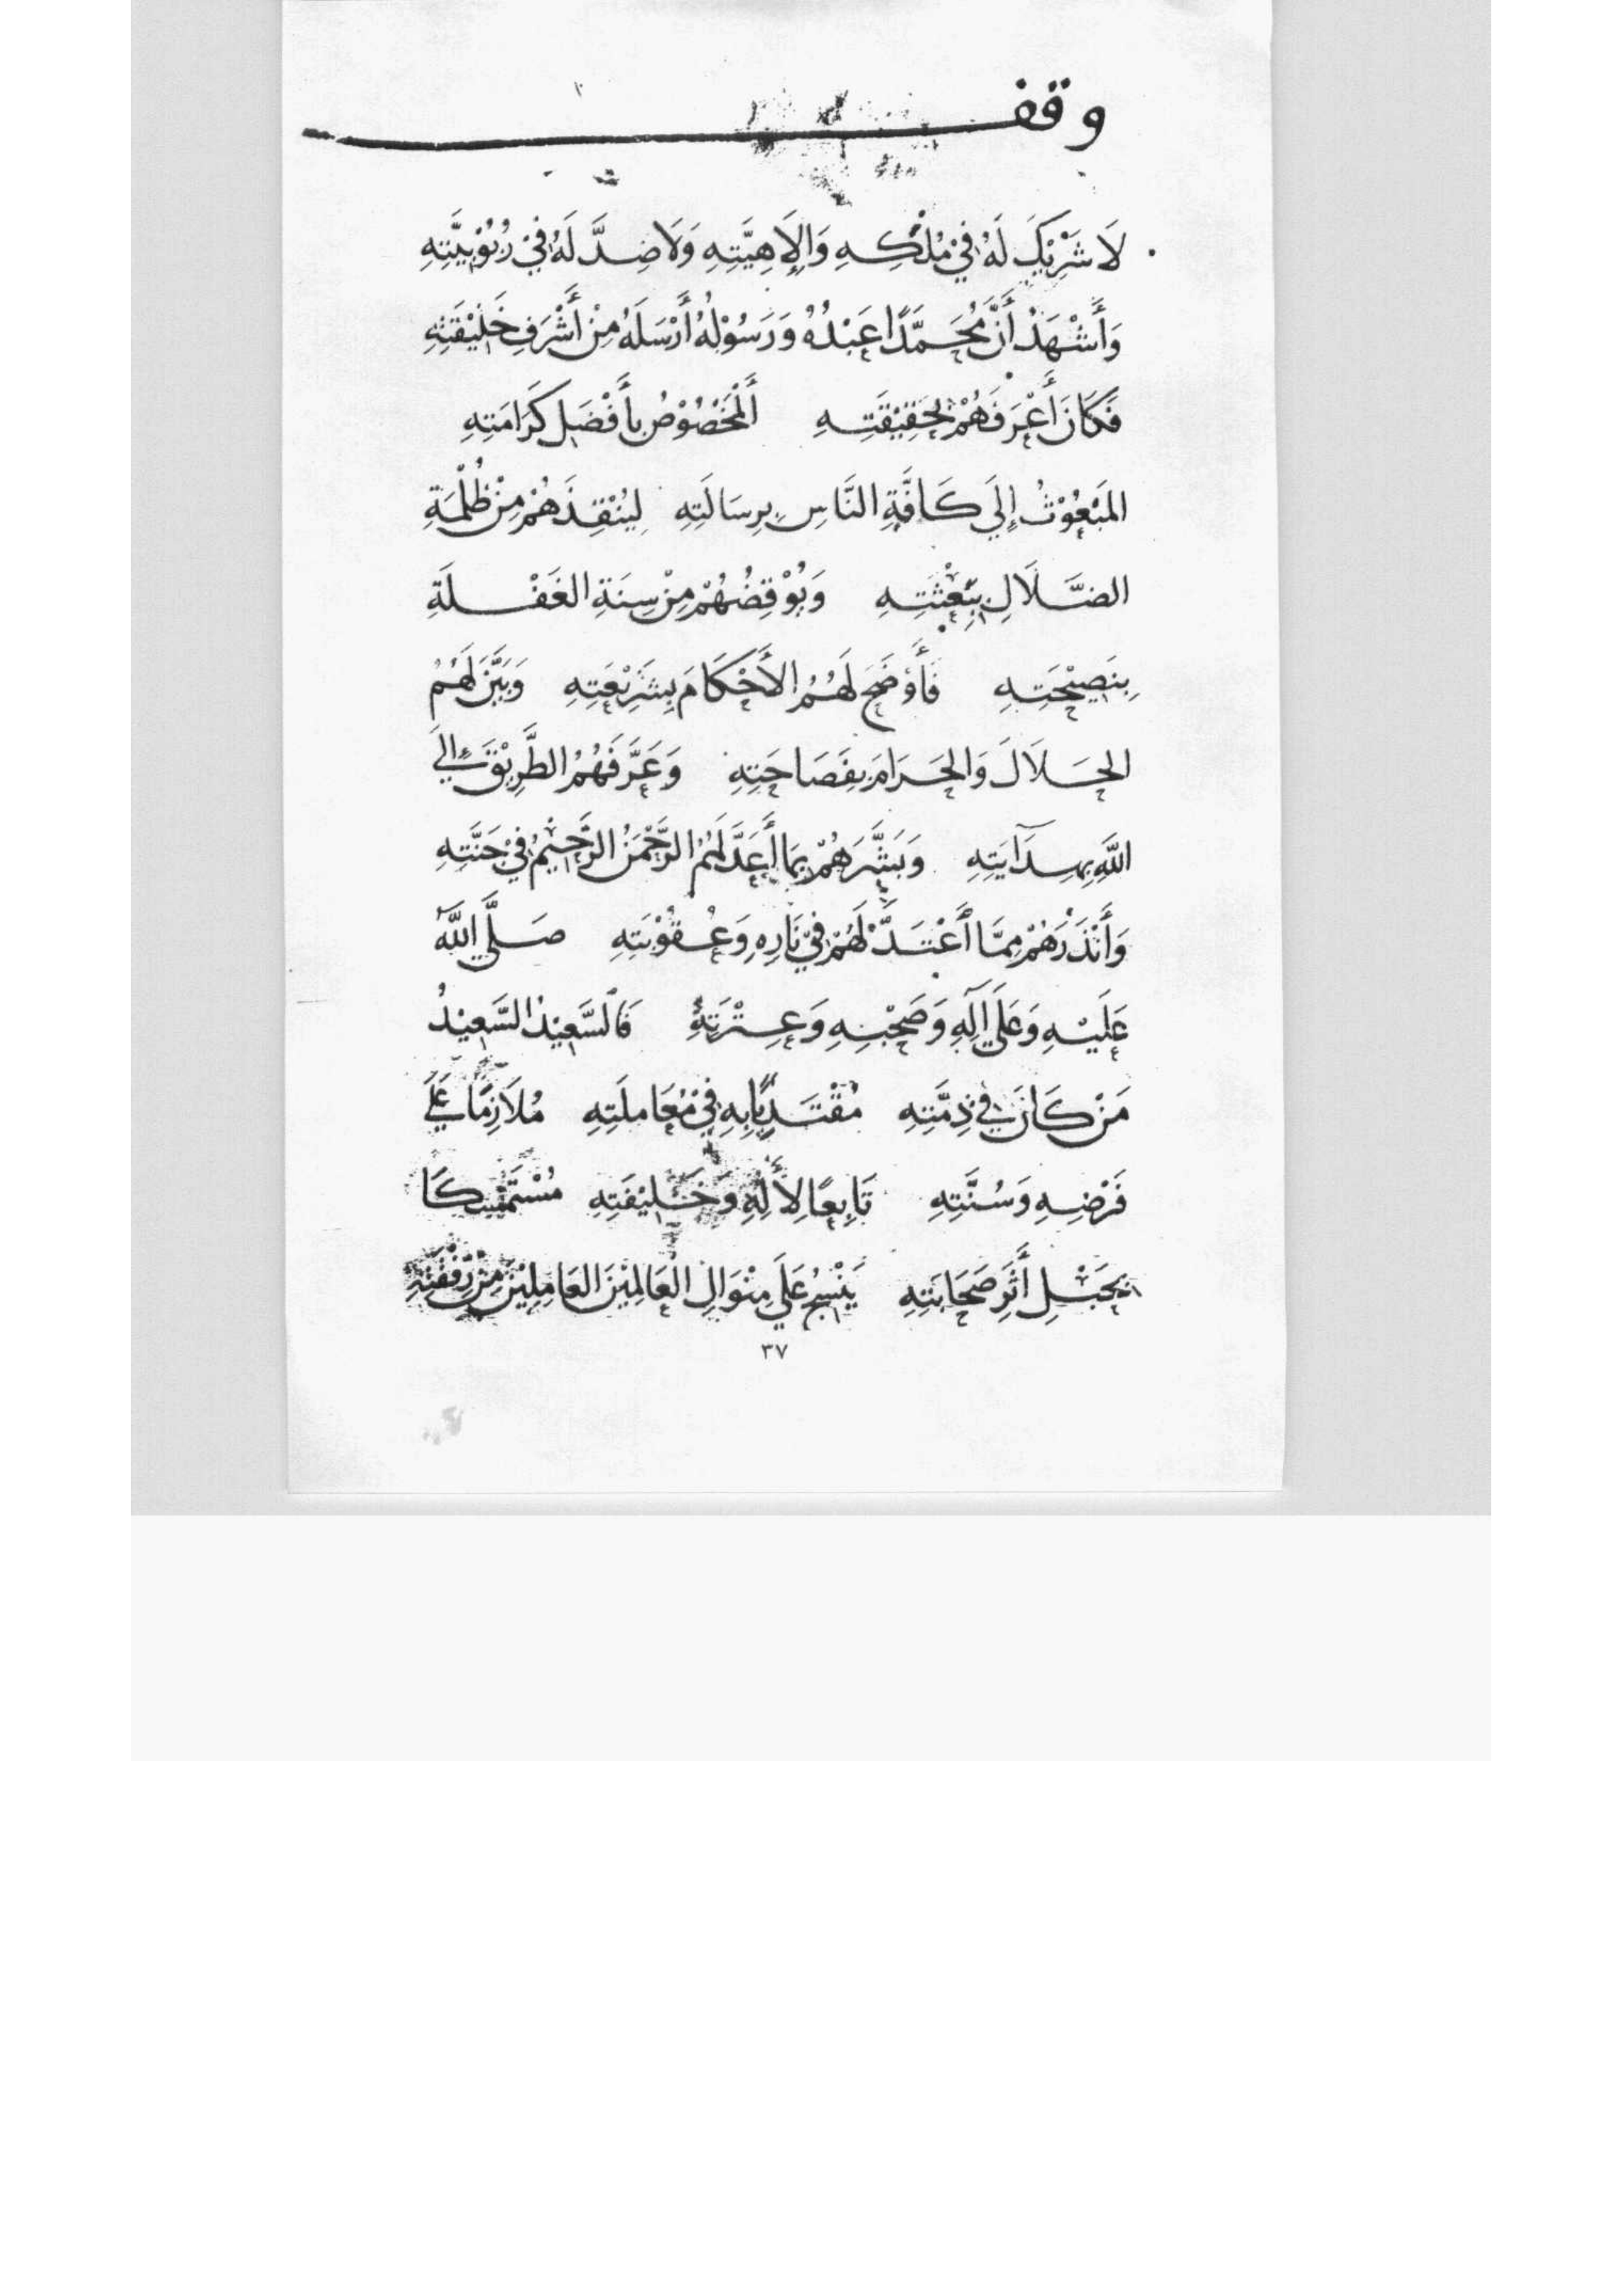 وقف
لَا شَرِيْكَ لَهُ فِيْ مُلْكِهِ وَالْإِلَاهِيَّتِهِ وَلَا ضِدَّ لَهُ فِيْ رُبُوْبِيَّتِهِ
وَأَشْهَدُ أَنَّ مُحَمَّدًا عَبْدُهُ وَرَسُوْلُهُ أَرْسَلَهُ مِنْ أَشْرَفِ خَلِيْقَتِهِ
فَكَانَ أَعْرَفَهُمْ بِحَقِيْقَتِهِ أَلْمَخْصُوْصُ بِأَفْضَلِ كَرَامَتِهِ
المَبْعُوْثُ إِلَي كَافَّةِ النَّاسِ بِرِسَالَتِهِ لِيُنْقِذَهُمْ مِنْ ظُلْمَةِ
الضَّلَالِ بِبِعْثَتِهِ وَيُوْقِضُهُمْ مِنْ سِنَةِ الغَفْلَةِ
بِنَصِيْحَتِهِ فَأَوْضَحَ لَهُمُ الأَحْكَامَ بِشَرِيْعَتِهِ وَبَيَّنَ لَهُمُ
الحَلَالَ وَالحَرَامَ بِفَصَاحَتِهِ وَعَرَّفَهُمُ الطَّرِيْقَ إِلَي
اللَّهِ بِهِدَايَتِهِ وَبَشَّرَهُمْ بِمَا أَعَدَّ لَهُمُ الرَّحْمَنُ الرَّحِيْمُ فِيْ جَنَّتِهِ
وَأَنْذَرَهُمْ مِمَّا أَعْتَدَّ لَهُمْ فِيْ نَارِهِ وَعُقُوْبَتِهِ صَلَّي اللَّهُ
عَلَيْهِ وَعَلَي آلِهِ وَصَحْبِهِ وَعِتْرَتِهِ فَالسَّعِيْدُ السَّعِيْدُ
مَنْ كَانَ فِي ذِمَّتِهِ مُقْتَدِيًا بِهِ فِيْ مُعَامَلَتِهِ مُلَازِمًا عَلَي
فَرْضِهِ وَسُنَّتِهِ تَابِعًا لِأَلِهِ وَخَلِيْفَتِهِ مُسْتَمْسِكًا
بِحَبْلِ أَثَرِ صَحَابَتِهِ يَنْسِجُ عَلَي مِنْوَالِ العَالِمِيْنَ العَامِلِيْنَ مِنْ رِفْقَتِهِ
٣٧